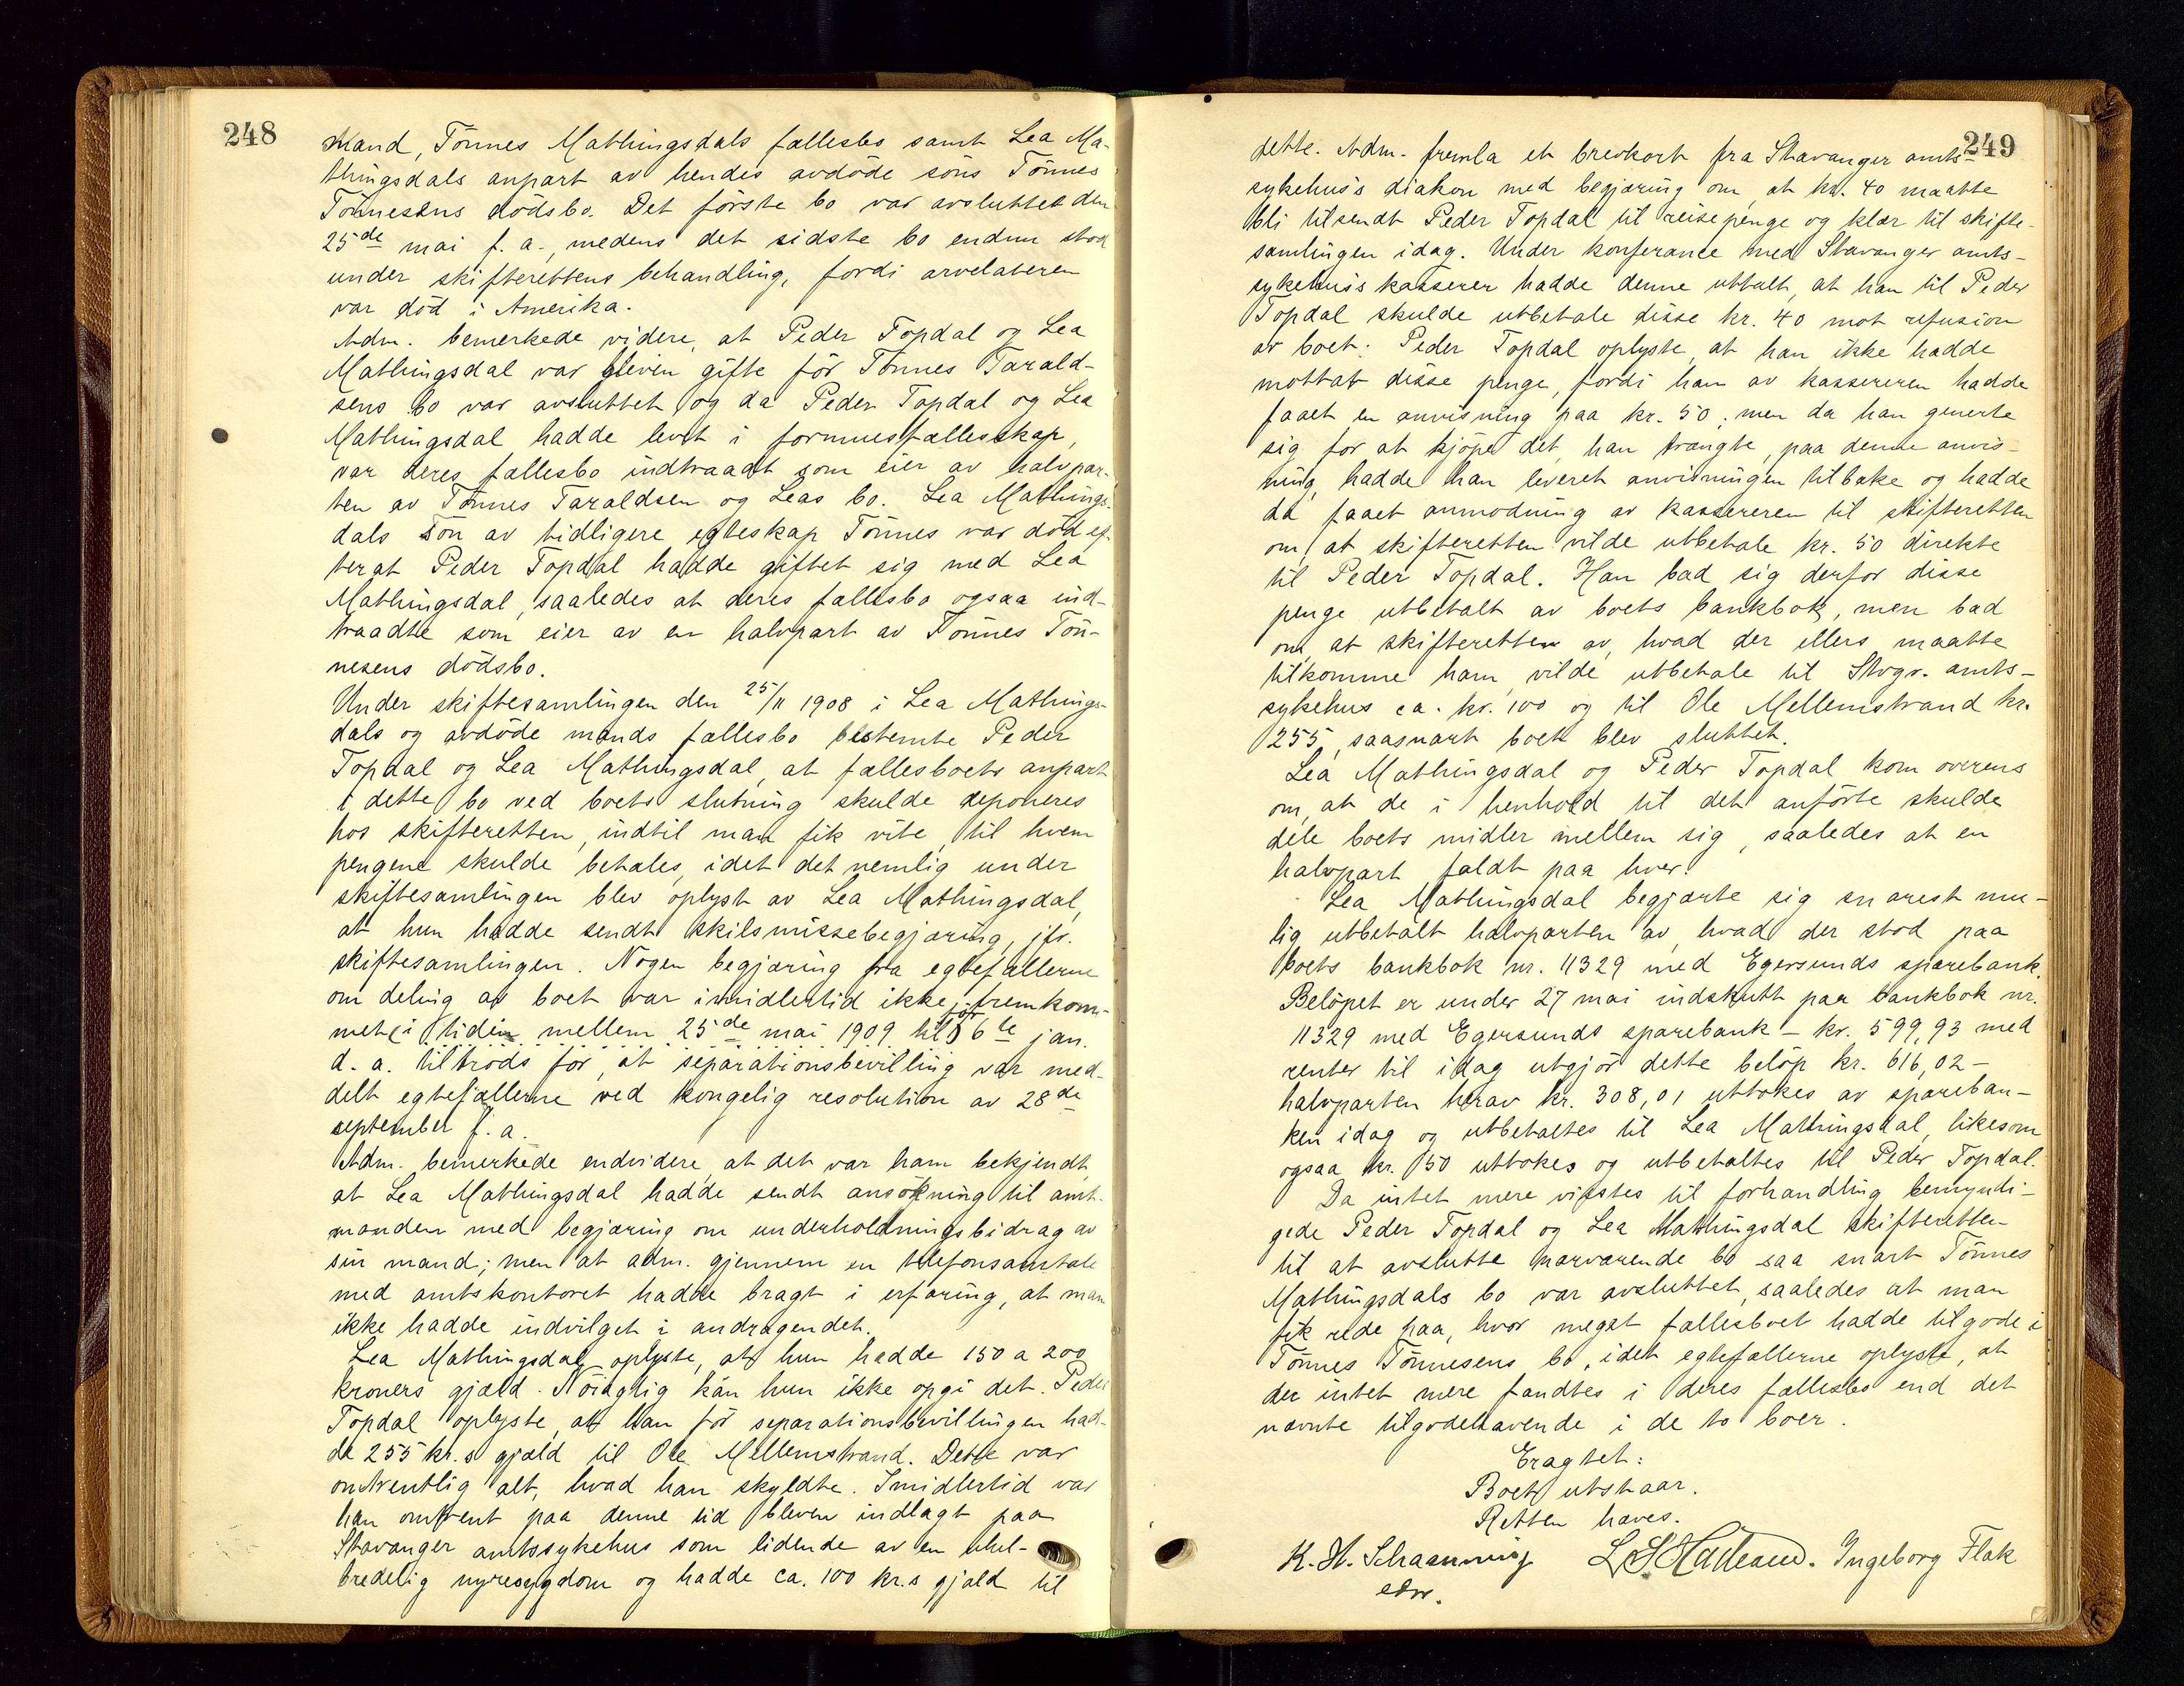 248
Mand, Tönnes Mathingsdals fællesbo samt Lea Ma-
thingsdals anpart av hendes avdöde söns Tönnes
Tönnesens dödsbo. Det förste bo var avsluttet den
25de mai f. a., medens det sidste bo endnu stod
under skifterettens behandling, fordi arvelateren
var död i Amerika.
Adm. bemerkede videre, at Peder Topdal og Lea
Mathingsdal var bleven gifte för Tönnes Tarald-
sens bo var avsluttet og da Peder Topdal og Lea
Mathingsdal hadde levet i formuesfællesskap,
var deres fællesbo indtraadt som eier av halvpar-
ten av Tönnes Taraldsen og Leas bo. Lea Mathings-
dals sön av tidligere egteskap Tönnes var död ef-
terat Peder Topdal hadde giftet sig med Lea
Mathingsdal, saaledes at deres fællesbo ogsaa ind-
traadte som eier av en halvpart av Tönnes Tön-
nesens dödsbo.
Under skiftesamlingen den 25/11 1908 i Lea Mathings-
dals og avdöde mands fællesbo bestemte Peder
Topdal og Lea Mathingsdal, at fællesboets anpart
i dette bo ved boets slutning skulde deponeres
hos skifteretten, indtil man fik vite, til hvem
pengene skulde betales, idet det nemlig under
skiftesamlingen blev oplyst av Lea Mathingsdal,
at hun hadde sendt skilsmissebegjæring, jfr.
skiftesamlingen. Nogen begjæring fra egtefællerne
om deling av boet var imidlertid ikke fremkom-
met i tiden mellem 25de mai 1909 til 6te jan.
d. a. tiltrods for, at separationsbevilling var med-
delt egtefællerne ved kongelig resolution av 28de
september f. a.
Adm. bemerkede endvidere, at det var ham bekjendt,
at Lea Mathingsdal hadde sendt ansökning til amt-
manden med begjæring om underholdningsbidrag av
sin mand; men at adm. gjennem en telefonsamtale
med amtskontoret hadde bragt i erfaring, at man
ikke hadde indvilget i andragendet.
Lea Mathingsdal oplyste, at hun hadde 150 a 200
kroners gjæld. Nöiagtig kan hun ikke opgi det. Peder
Topdal oplyste, at han för separationsbevillingen had-
de 255 kr.s gjæld til Ole Mellemstrand. Dette var
omtrentlig alt, hvad han skyldte. Imidlertid var
han omtrent paa denne tid bleven indlagt paa
Stavanger amtssykehus som lidende av en uhel-
bredelig nyresygdom og hadde ca. 100 kr.s gjæld til
249
dette. Adm. fremla et brevkort fra Stavanger amts-
sykehus's diakon med begjæring om, at kr. 40 maatte
bli tilsendt Peder Topdal til reisepenge og klær til skifte-
samlingen idag. Under konferance med Stavanger amts-
sykehus's kasserer hadde denne uttalt, at han til Peder
Topdal skulde utbetale disse kr. 40 mot refusion
av boet. Peder Topdal oplyste, at han ikke hadde
mottat disse penge, fordi han av kassereren hadde
faaet en anvisning paa kr. 50; men da han generte
sig for at kjöpe det, han trængte, paa denne anvis-
ning, hadde han leveret anvisningen tilbake og hadde
da faaet anmodning av kassereren til skifteretten
om, at skifteretten vilde utbetale kr. 50 direkte
til Peder Topdal. Han bad sig derfor disse
penge utbetalt av boets bankbok, men bad
om, at skifteretten av, hvad der ellers maatte
tilkomme ham, vilde utbetale til Stvgr. amts-
sykehus ca. kr. 100 og til Ole Mellemstrand kr.
255, saasnart boet blev sluttet.
Lea Mathingsdal og Peder Topdal kom overens
om, at de i henhold til det anförte skulde
dele boets midler mellem sig, saaledes at en
halvpart faldt paa hver.
Lea Mathingsdal begjærte sig snarest mu-
lig utbetalt halvparten av, hvad der stod paa
boets bankbok nr. 11329 med Egersunds sparebank.
Belöpet er under 27 mai indskutt paa bankbok nr.
11329 med Egersunds sparebank – kr. 599,93 med
renter til idag utgjör dette belöp kr. 616,02 –
halvparten herav kr. 308,01 uttokes av spareban-
ken idag og utbetaltes til Lea Mathingsdal, likesom
ogsaa kr. 50 uttokes og utbetaltes til Peder Topdal.
Da intet mere vistes til forhandling bemyndi-
gede Peder Topdal og Lea Mathingsdal skifteretten
til at avslutte nærværende bo saa snart Tönnes
Mathingsdals bo var avsluttet, saaledes at man
fik rede paa, hvor meget fællesboet hadde tilgode i
Tönnes Tönnesens bo, idet egtefællerne oplyste, at
der intet mere fandtes i deres fællesbo end det
nævnte tilgodehavende i de to boer.
Eragtet:
Boet utstaar.
Retten hæves.
K. H. Schaanning Ingeborg Flak